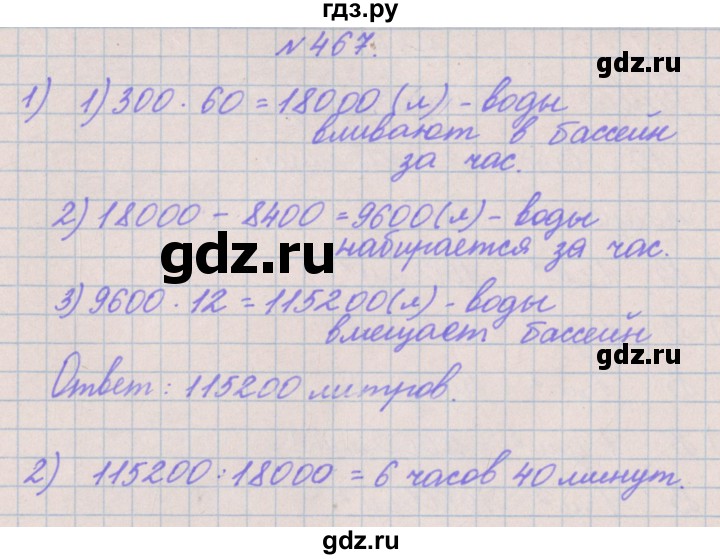 гдз.ру
№467.
gdz.ru
1) 1) 300 · 60 = 18000 (л) - воды
вливают в бассейн
за час.
2) 18000 - 8400 = 9600 (л) - воды
набирается за час.
gdz.ru
3) 9600 · 12 = 115200 (л) - воды
вмещает бассейн
gdz.ru
Ответ: 115200 литров.
2) 115200 : 18000 = 6 часов 40 минут.
gdz.ru